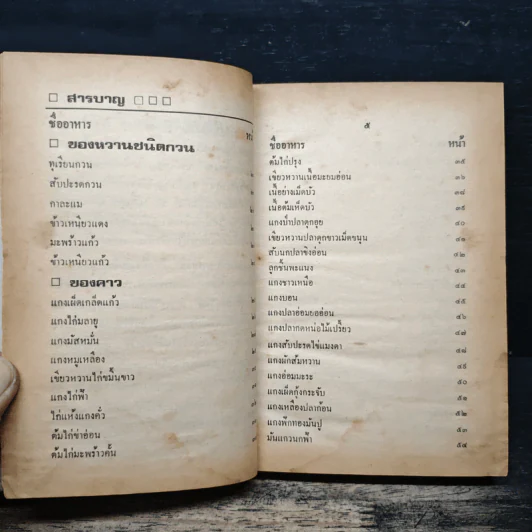 □ สารบาญ □□□
ชื่ออาหาร
□ ของหวานชนิดกวน
ทุเรียนกวน
สับปะรดกวน
กาละแม
ข้าวเหนียวแดง
มะพร้าวแก้ว
ข้าวเหนียวแก้ว
□ ของคาว
แกงเผ็ดเกล็ดแก้ว
แกงไก่มลายู
แกงมัสหมั่น
แกงหมูเหลือง
เขียวหวานไก่ขมิ้นขาว
แกงไก่ฟ้า
ไก่แห้งแกงคั่ว
ต้มไก่ข่าอ่อน
ต้มไก่มะพร้าวคั้น
๕
ชื่ออาหาร หน้า
ต้มไก่ปรุง ๓๕
เขียวหวานเนื้อมะยมอ่อน ๓๖
เนื้อย่างเม็ดบัว ๓๘
เนื้อต้มเห็ดบัว ๓๙
แกงป่าปลาดุกอุย ๔๐
เขียวหวานปลาดุกขาวเม็ดขนุน ๔๑
สับนกปลาขิงอ่อน ๔๒
ลูกชิ้นพะแนง ๔๓
แกงชาวเหนือ ๔๔
แกงบอน ๔๕
แกงปลาย่อมยออ่อน ๔๖
แกงปลากดหน่อไม้เปรี้ยว ๔๗
แกงสับปะรดไข่แมงดา ๔๘
แกงผักส้มหวาน ๔๙
แกงอ่อมมะระ ๕๐
แกงเผ็ดกุ้งกระจับ ๕๑
แกงเหลืองปลาก้อน ๕๒
แกงฟักทองมันปู ๕๓
มันแกวนกฟ้า ๕๔